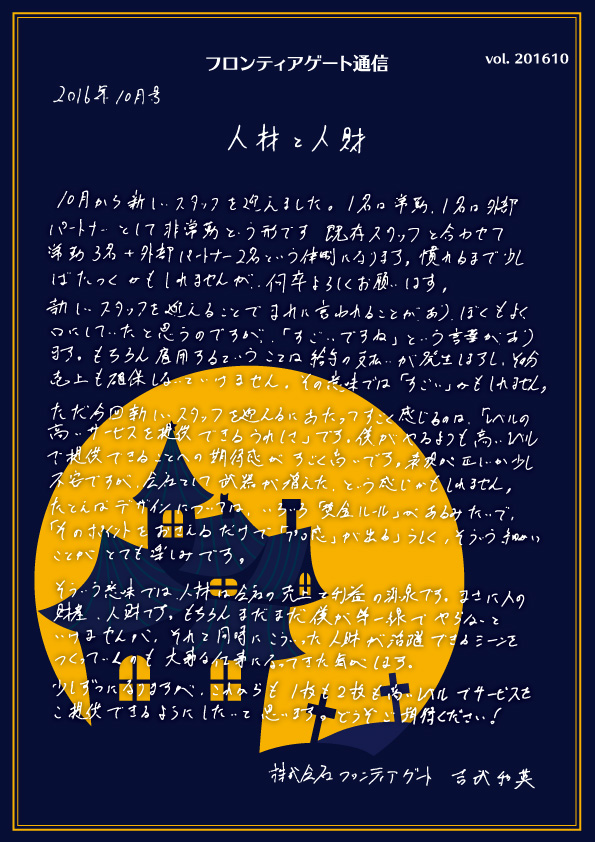 フロンティアゲート通信
vol. 201610
2016年10月号
人材と人財
10月から新しいスタッフを迎えました。1名は常勤、1名は外部
パートナーとして非常勤という形です 既存スタッフと合わせて
常勤3名+外部パートナー2名という体制になります。慣れるまで少し
ばたつくかもしれませんが、何卒よろしくお願いします。
新しいスタッフを迎えることでまれに言われることがあり、ぼくもよく
口にしていたと思うのですが、「すごいですね」という言葉があり
ます。もちろん雇用するということは給与の支払いが発生しますし、その分
売上も確保しないといけません。その意味では「すごい」かもしれません。
ただ今回新しいスタッフを迎えるにあたってすごく感じるのは、「レベルの
高いサービスを提供できるうれしさ」です。僕がやるよりも高いレベル
で提供できることへの期待感がすごく高いです。表現が正しいか少し
不安ですが、会社として武器が増えた、という感じかもしれません。
たとえばデザインについては、いろいろ「黄金ルール」があるみたいで、
「そのポイントをおさえるだけで「プロ感」が出る」らしく、そういう細かい
ことがとても楽しみです。
そういう意味では、人材は会社の売上と利益の源泉です。まさに人の
財産、人財です。もちろんまだまだ僕が第一線でやらないと
いけませんが、それと同時にこういった人財が活躍できるシーンを
つくっていくのも大事な仕事になってきた気がします。
少しずつになりますが、これからも1枚も2枚も高いレベルでサービスを
ご提供できるようにしたいと思います。どうぞご期待ください!
株式会社フロンティアゲート 吉武和英